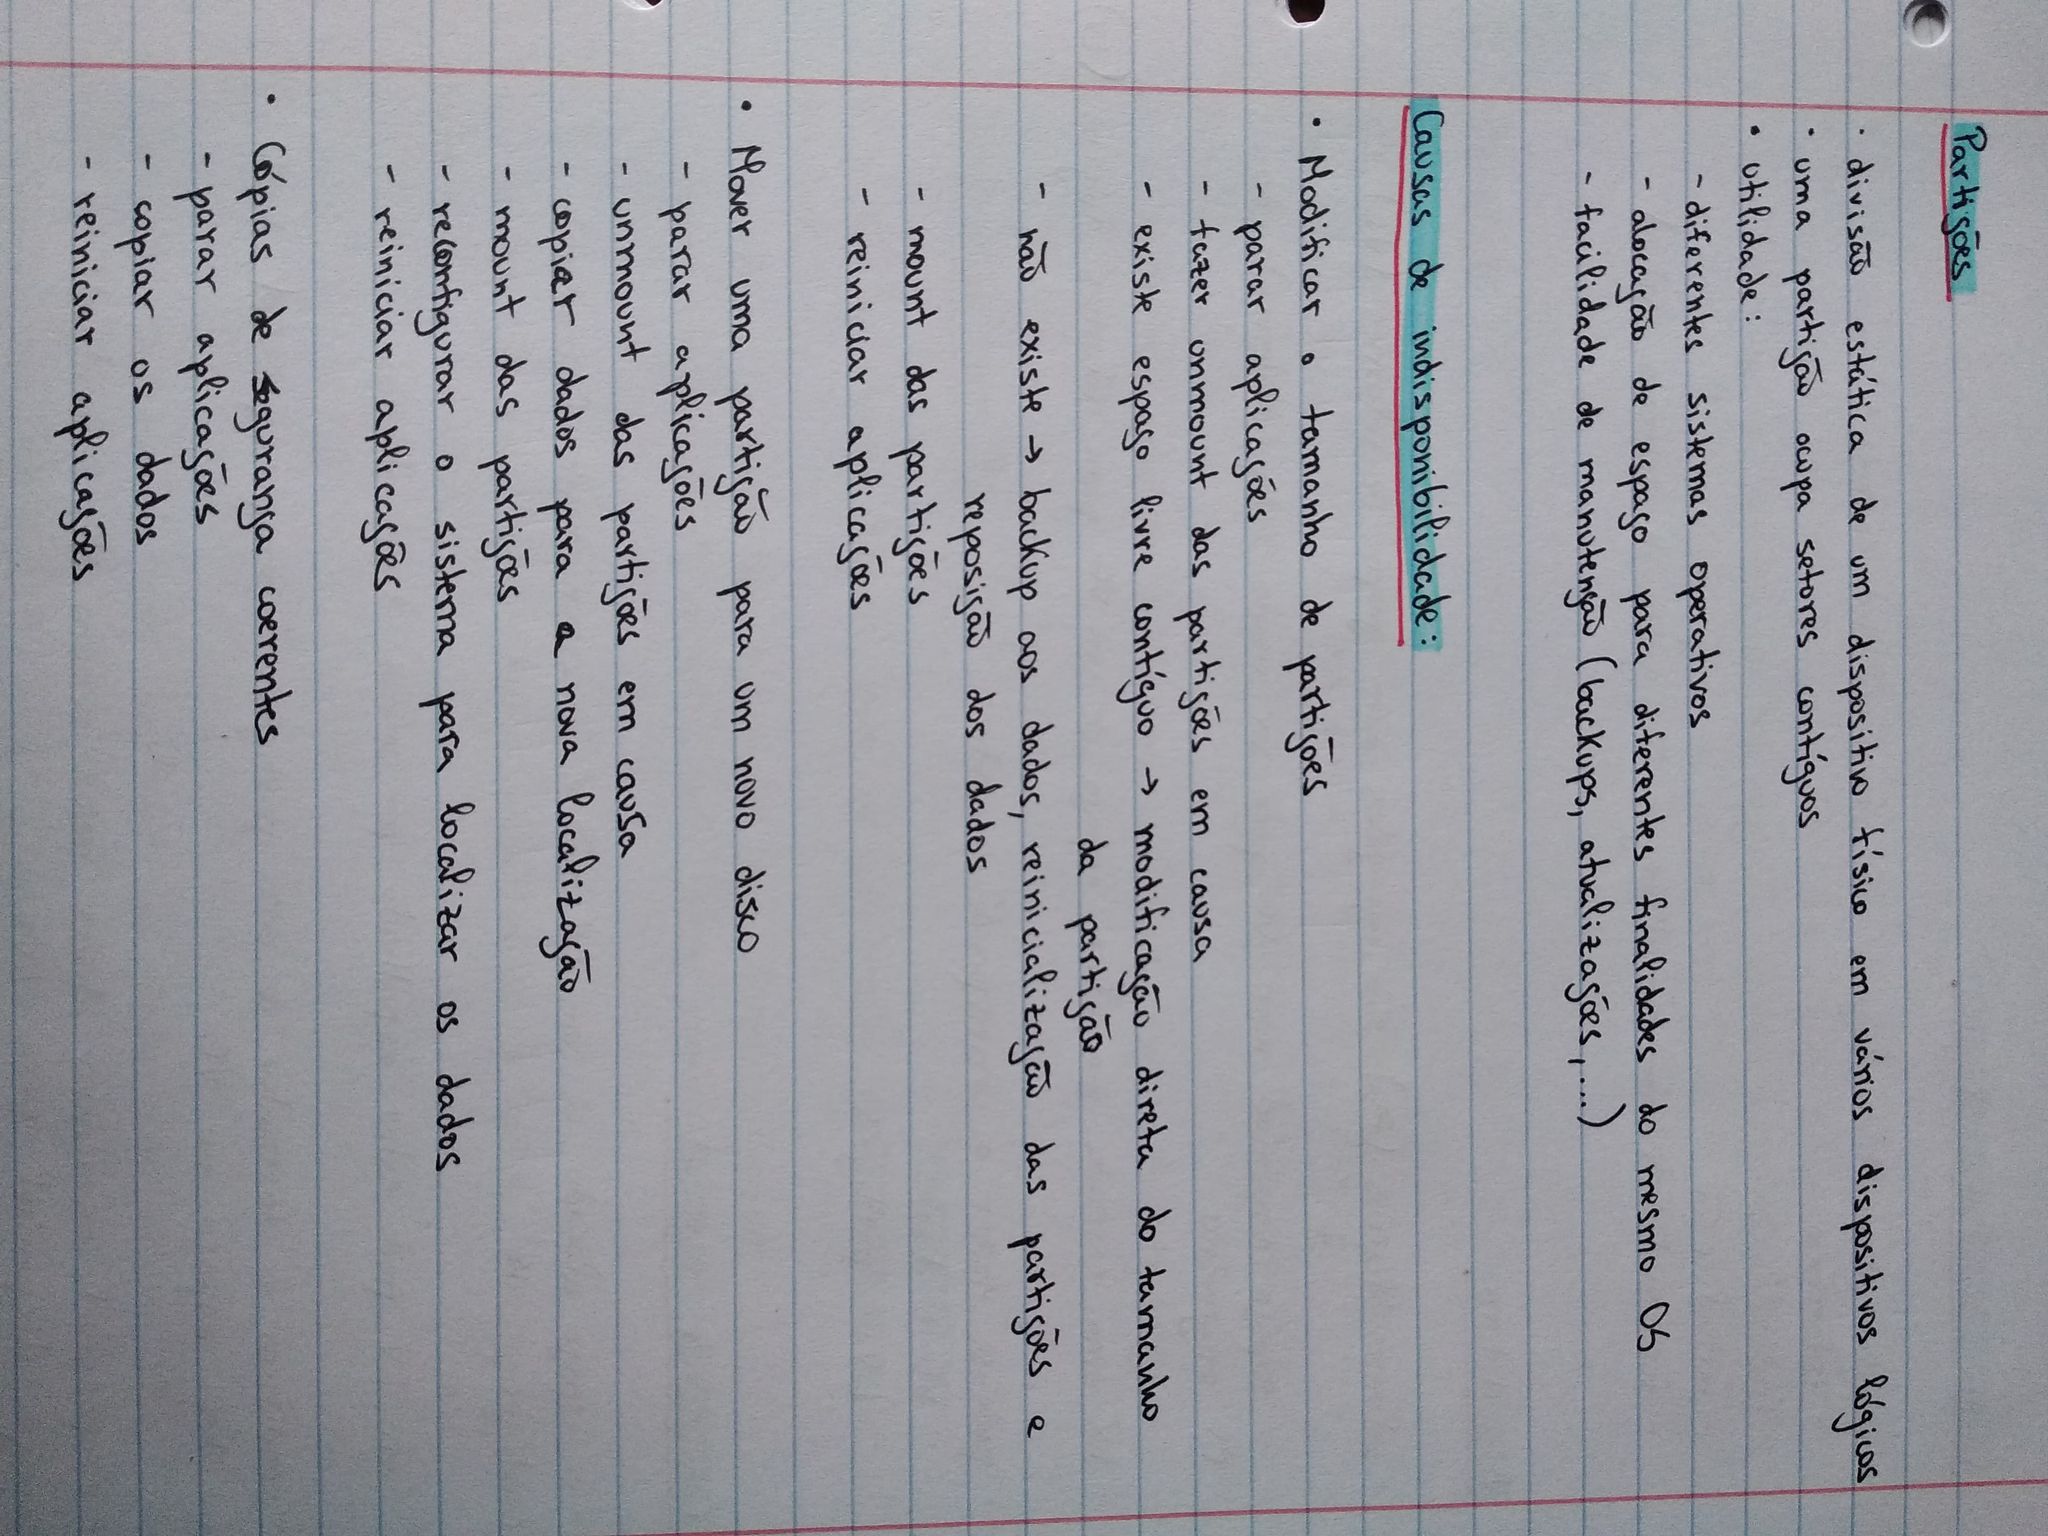 Partições
· divisão estática de um dispositivo físico em vários dispositivos lógicos
· uma partição ocupa setores contíguos
• utilidade:
- diferentes sistemas operativos
- alocação de espaço para diferentes finalidades do mesmo OS
- facilidade de manutenção (backups, atualizações, ...)
Causas de indisponibilidade:
• Modificar o tamanho de partições
- parar aplicações
- fazer unmount das partições em causa
- existe espaço livre contíguo → modificação direta do tamanho
da partição
- não existe → backup aos dados, reinicialização das partições e
reposição dos dados
- mount das partições
- reiniciar aplicações
• Mover uma partição para um novo disco
- parar aplicações
- unmount das partições em causa
- copiar dados para a nova localização
- mount das partições
- reconfigurar o sistema para localizar os dados
- reiniciar aplicações
• Cópias de segurança coerentes
- parar aplicações
- copiar os dados
- reiniciar aplicações